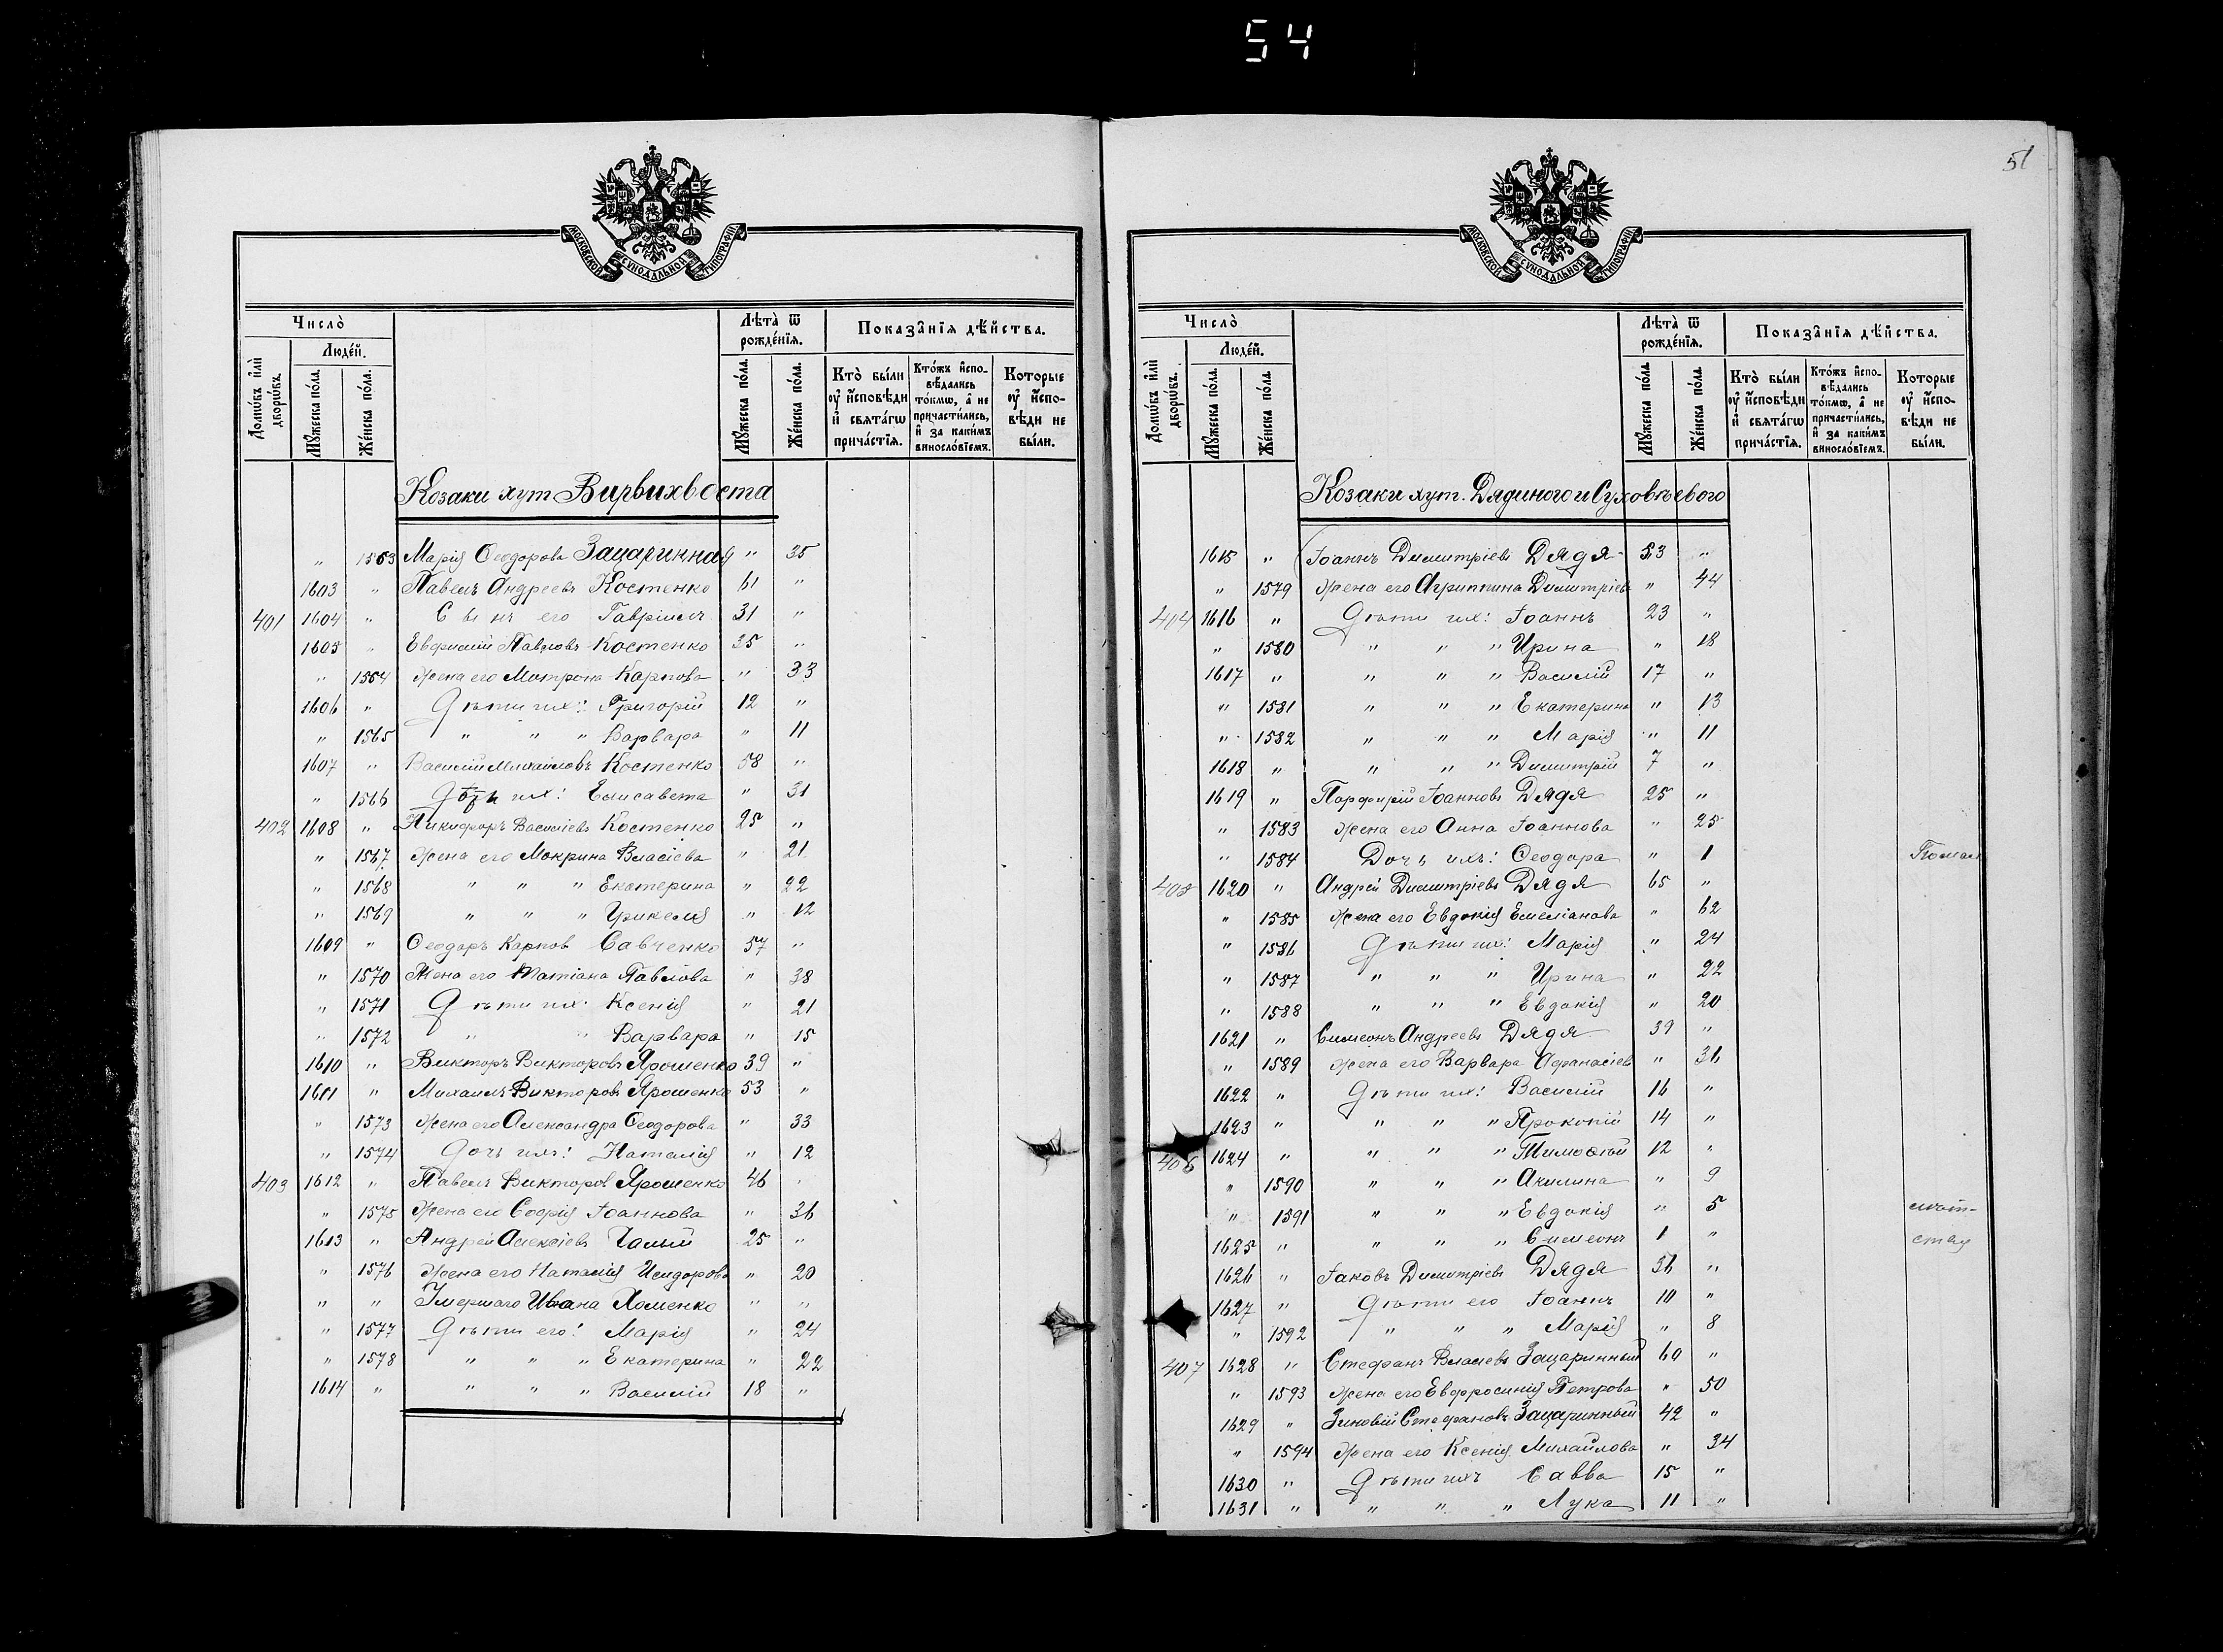 54
51
МОСКОВСКОЙ СѴНОДАЛЬНОЙ ТИПОГРАФІИ
Число̀
Люде́й.
Домѡ́въ и҆лѝ дворѡ́въ.
Мꙋ́жеска по́ла.
Же́нска по́ла.
Лѣ́та ѿ рожде́нїѧ.
Мꙋ́жеска по́ла.
Же́нска по́ла.
Показа̑нїѧ дѣ́йства.
Кто̀ бы́ли ᲂу҆ и҆́сповѣди и҆ свѧта́гѡ прича́стїѧ.
Кто́жъ и҆спо-вѣ́дались то́кмѡ, а҆ не причасти́лись, и҆ за каки́мъ винословїемъ.
Которые ᲂу҆ и҆́спо-вѣди не бы́ли.
Козаки хут Вирвихвоста
" 1563 Марія Ѳеодорова Зацаринная " 35
1603 " Павелъ Андреевъ Костенко 61 "
401 1604 " Сынъ его Гавріилъ 31 "
1605 " Евфимій Павловъ Костенко 35 "
" 1564 Жена его Мотрона Карпова " 33
1606 " Дѣти ихъ: Григорій 12 "
" 1565 " " " Варвара " 11
1607 " Василій Михайловъ Костенко 58 "
" 1566 Дочь ихъ: Елисавета " 31
402 1608 " Никифоръ Василіевъ Костенко 25 "
" 1567 Жена его Мокрина Власіева " 21
" 1568 " " " Екатерина " 22
" 1569 " " " " 12
1609 " Ѳеодоръ Карпов Савченко 57 "
" 1570 Жена его Татіана Павлова " 38
" 1571 Дѣти ихъ Ксенія " 21
" 1572 " " Варвара " 15
1610 " Викторъ Викторовъ Ярошенко 39 "
1611 " Михаилъ Викторовъ Ярошенко 53 "
" 1573 Жена его Александра Ѳеодорова " 33
" 1574 Дочь ихъ: Наталія " 12
403 1612 " Павелъ Викторов Ярошенко 46 "
" 1575 Жена его Софія Іоаннова " 36
1613 " Андрей Алексіевъ Чалый 25 "
" 1576 Жена его Наталія Исидорова " 20
" " Умершаго Ивана Хоменко " "
" 1577 Дѣти его: Марія " 24
" 1578 " " " Екатерина " 22
1614 " " " " Василій 18 "
МОСКОВСКОЙ СѴНОДАЛЬНОЙ ТИПОГРАФІИ
Число̀
Люде́й.
Домѡ́въ и҆лѝ дворѡ́въ.
Мꙋ́жеска по́ла.
Же́нска по́ла.
Лѣ́та ѿ рожде́нїѧ.
Мꙋ́жеска по́ла.
Же́нска по́ла.
Показа̑нїѧ дѣ́йства.
Кто̀ бы́ли ᲂу҆ и҆́сповѣди и҆ свѧта́гѡ прича́стїѧ.
Кто́жъ и҆спо-вѣ́дались то́кмѡ, а҆ не причасти́лись, и҆ за каки́мъ винословїемъ.
Которые ᲂу҆ и҆́спо-вѣди не бы́ли.
Козаки хут. Дядиного и Суховѣевого
1615 " Іоаннъ Димитріевъ Дядя 53 "
" 1579 Жена его Агриппина Димитріева " 44
404 1616 " Дѣти ихъ: Іоаннъ 23 "
" 1580 " " " Ирина " 18
1617 " " " " Василій 17 "
" 1581 " " " Екатерина " 13
" 1582 " " " Марія " 11
1618 " " " " Димитрій 7 "
1619 " Порфирій Іоанновъ Дядя 25 "
" 1583 Жена его Анна Іоаннова " 25
" 1584 Дочь ихъ: Ѳеодора " 1
405 1620 " Андрей Димитріевъ Дядя 65 "
" 1585 Жена его Евдокія Емеліанова " 62
" 1586 Дѣти ихъ: Марія " 24
" 1587 " " " Ирина " 22
" 1588 " " " Евдокія " 20
1621 " Симеонъ Андреевъ Дядя 39 "
" 1589 Жена его Варвара Афанасіева " 36
1622 " Дѣти ихъ: Василій 16 "
1623 " " " " Прокопій 14 "
406 1624 " " " " Тимоѳей 12 "
" 1590 " " " Акилина " 9
" 1591 " " " Евдокія " 5
1625 " " " " Симеонъ 1 "
1626 " Іаковъ Димитріевъ Дядя 56 "
1627 " Дѣти его Іоаннъ 10 "
" 1592 " " " Марія " 8
407 1628 " Стефанъ Власіевъ Зацаринный 60 "
" 1593 Жена его Евфросинія Петрова " 50
1629 " Зиновій Стефановъ Зацаринный 42 "
" 1594 Жена его Ксенія Михайлова " 34
1630 " Дѣти ихъ Савва 15 "
1631 " " " " Лука 11 "